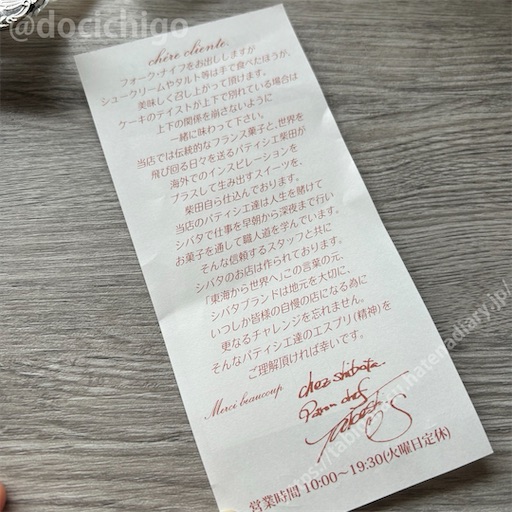 @docichigo
chère cliente.
フォーク・ナイフをお出ししますが
シュークリームやタルト等は手で食べたほうが、
美味しく召し上がって頂けます。
ケーキのテイストが上下で別れている場合は
上下の関係を崩さないように
一緒に味わって下さい。
当店では伝統的なフランス菓子と、世界を
飛び回る日々を送るパティシエ柴田が
海外でのインスピレーションを
プラスして生み出すスイーツを、
柴田自ら仕込んでおります。
当店のパティシエ達は人生を賭けて
シバタで仕事を早朝から深夜まで行い
お菓子を通して職人道を学んでいます。
そんな信頼するスタッフと共に
シバタのお店は作られております。
「東海から世界へ」この言葉の元、
シバタブランドは地元を大切に、
いつしか皆様の自慢の店になる為に
更なるチャレンジを忘れません。
そんなパティシエ達のエスプリ(精神)を
ご理解頂ければ幸いです。
Merci beaucoup.
chez shibata
Patron chef
営業時間 10:00〜19:30(火曜日定休)